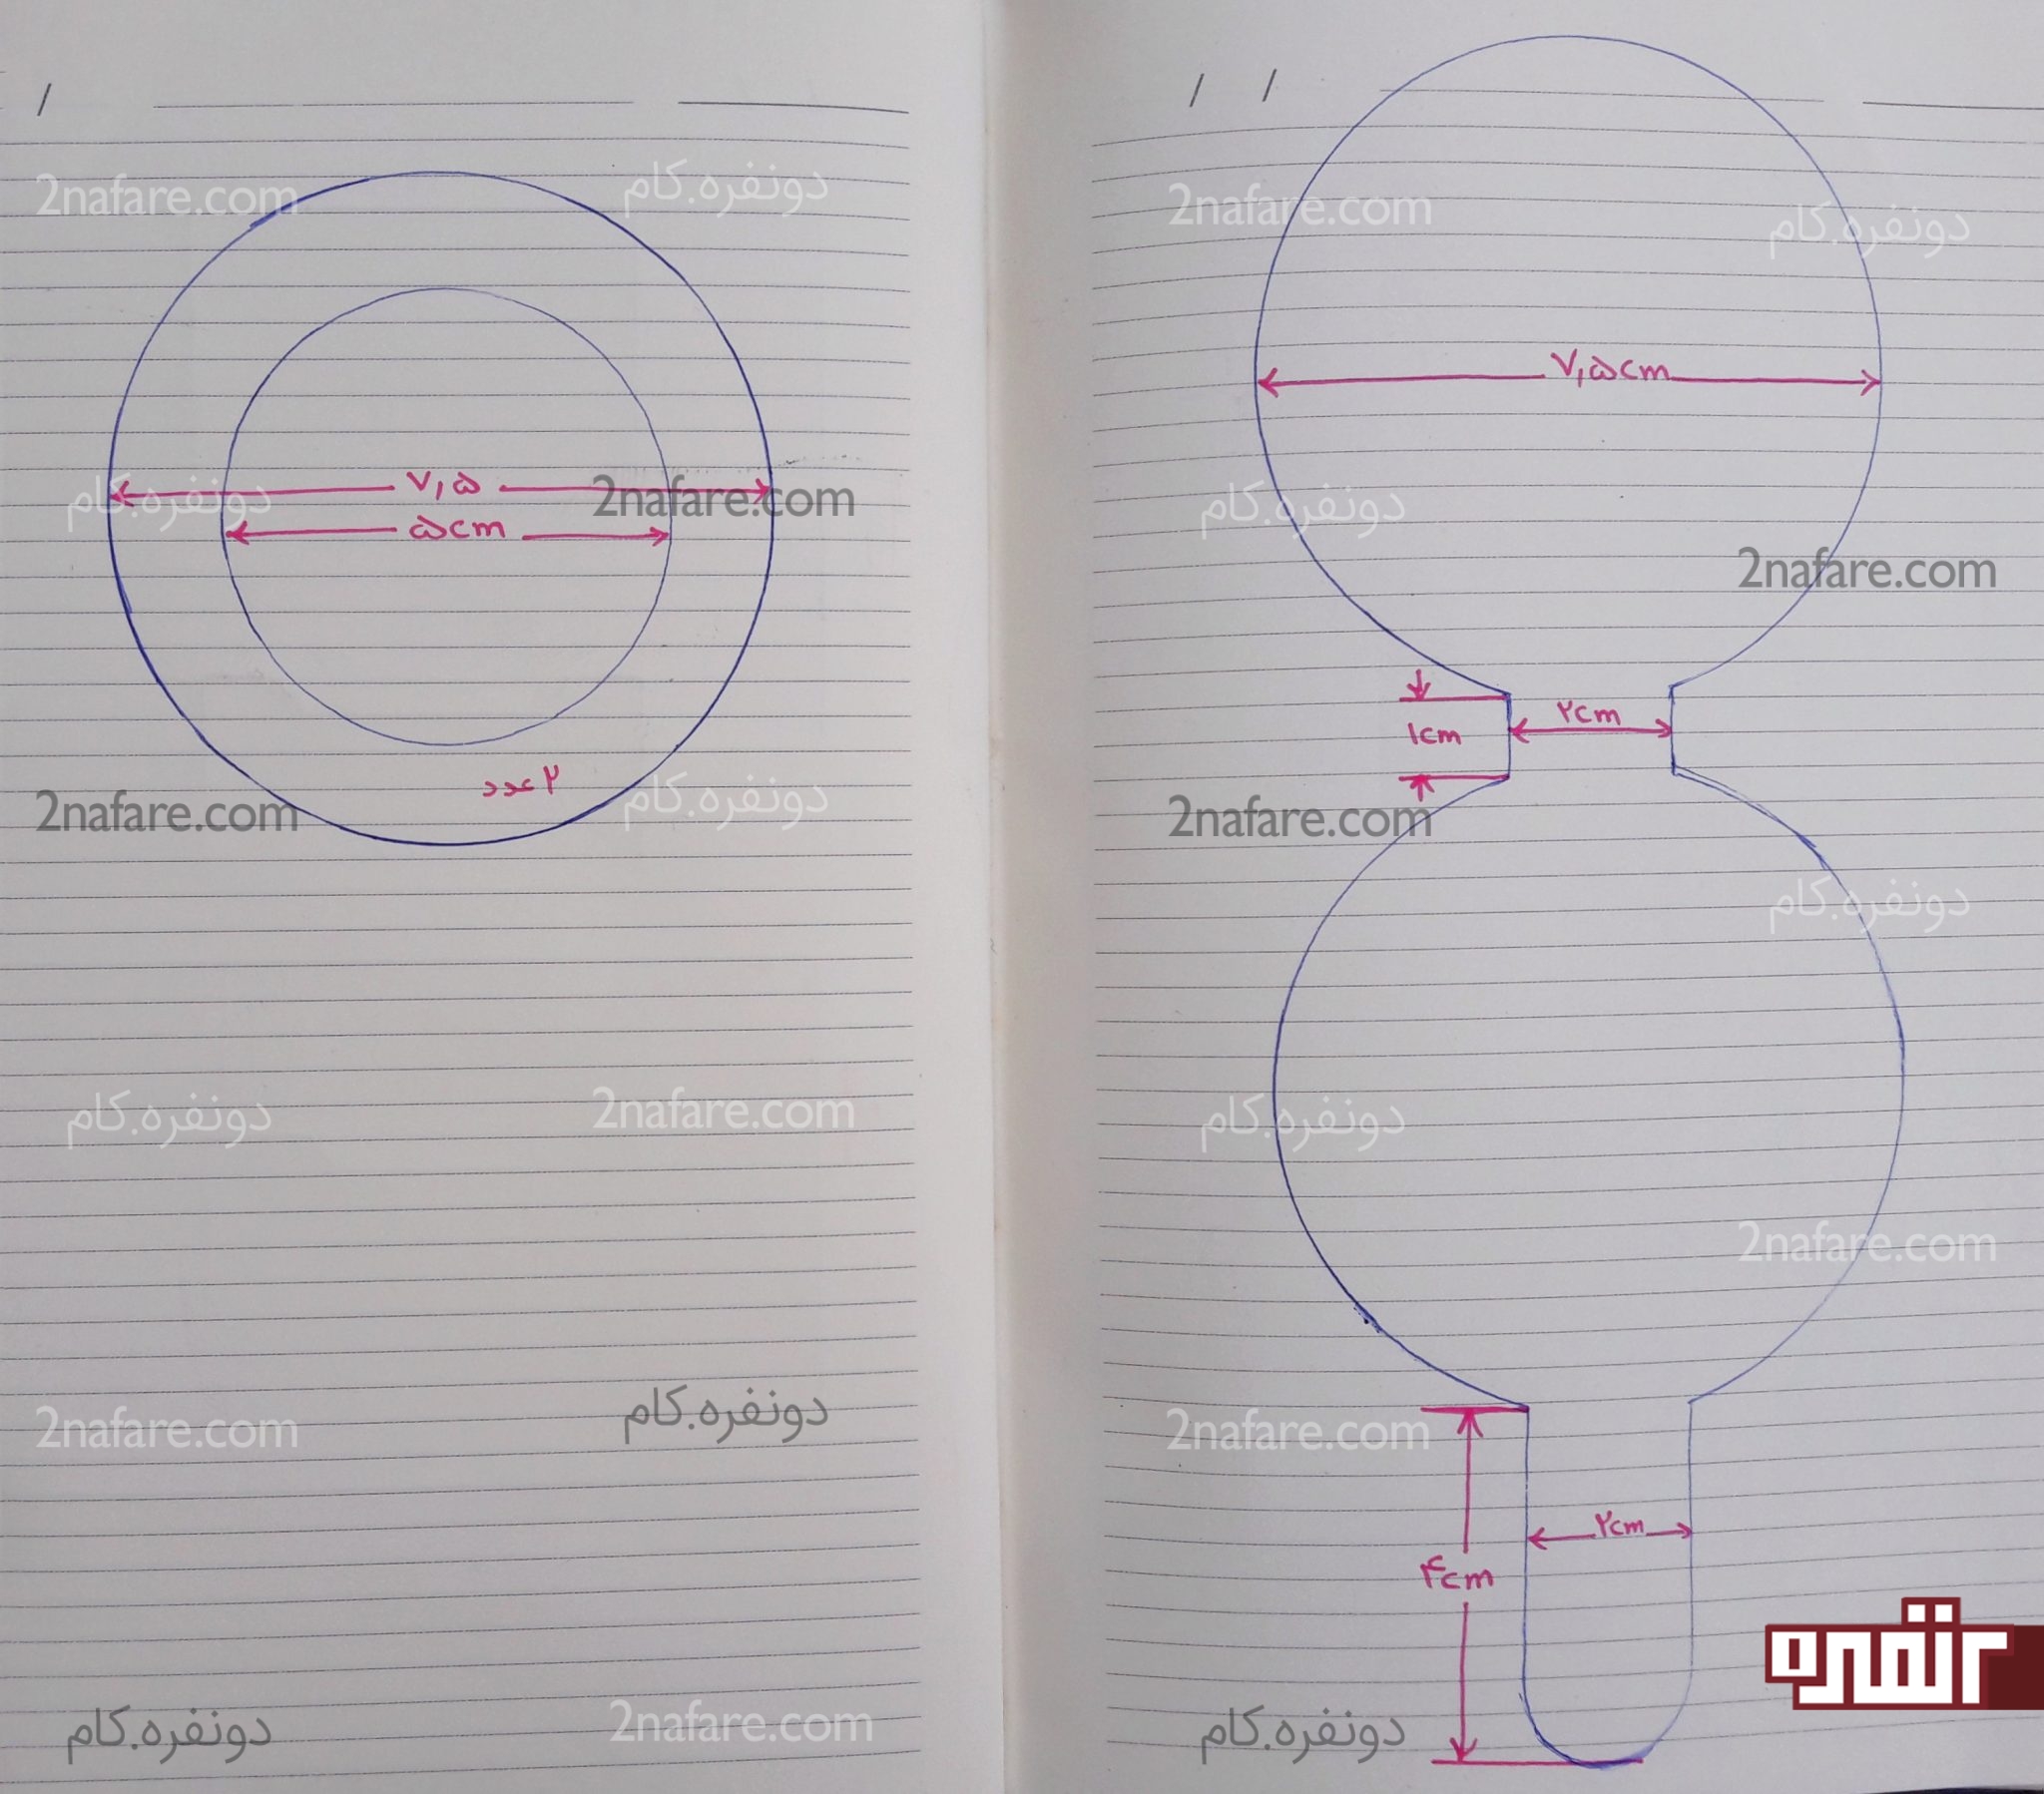 /
2nafare.com
دونفره.کام
دونفره.کام
۷,۵
2nafare.com
۵cm
۲ عدد
2nafare.com
دونفره.کام
دونفره.کام
2nafare.com
2nafare.com
دونفره.کام
دونفره.کام
2nafare.com
/ /
2nafare.com
دونفره.کام
۷,۵cm
دونفره.کام
2nafare.com
۱cm
۲cm
2nafare.com
دونفره.کام
دونفره.کام
2nafare.com
2nafare.com
۲cm
۴cm
دونفره.کام